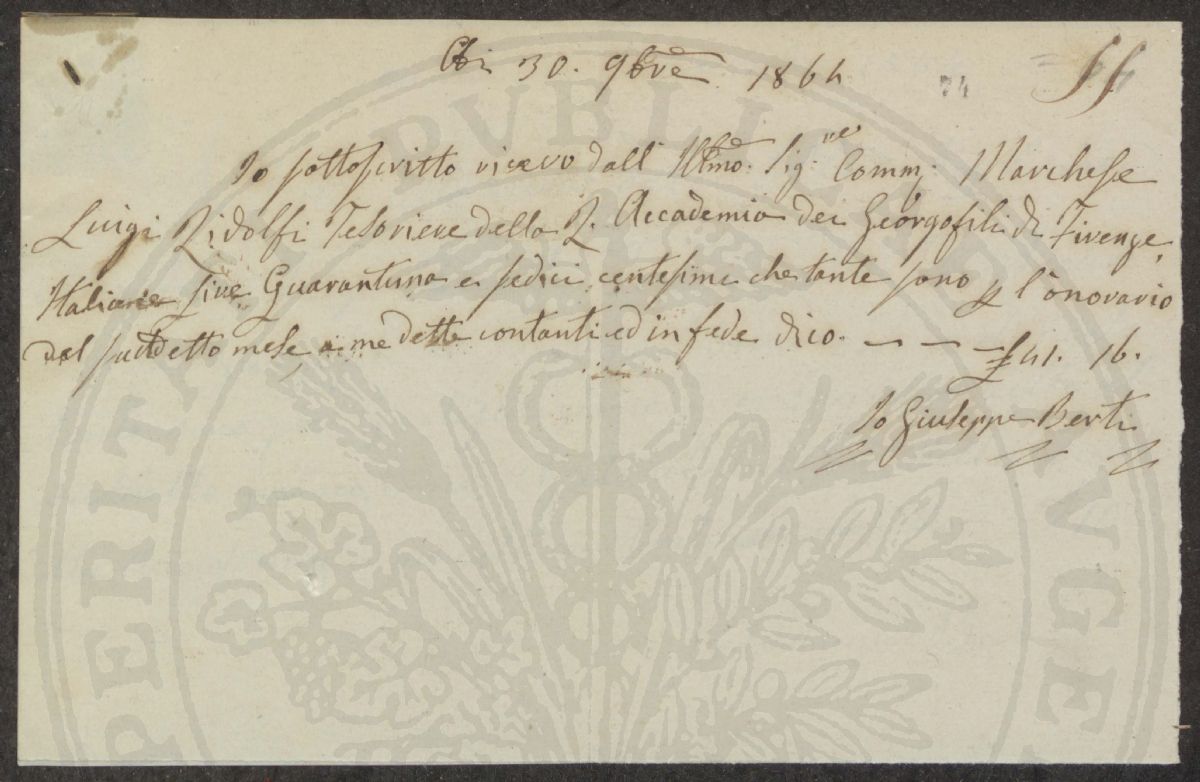 Adi 30. 9bre 1864
74
Io sottoscritto ricevo dall' Illmo: Sig:re Comm: Marchese
Luigi Ridolfi Tesoriere della R. Accademia dei Georgofili di Firenze,
Italiane Lire Quarantuna e sedici centesimi che tante sono p l'onorario
del suddetto mese, a me dette contanti ed in fede dico. — — — £ 41. 16.
Io Giuseppe Berti
PROSPERITATI PVBLICAE AVGENDAE